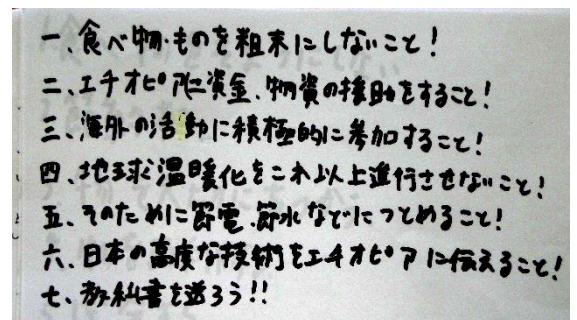 一、食べ物・ものを粗末にしないこと！
二、エチオピアに資金、物資の援助をすること！
三、海外の活動に積極的に参加すること！
四、地球温暖化をこれ以上進行させないこと！
五、そのために節電、節水などにつとめること！
六、日本の高度な技術をエチオピアに伝えること！
七、教科書を送ろう!!